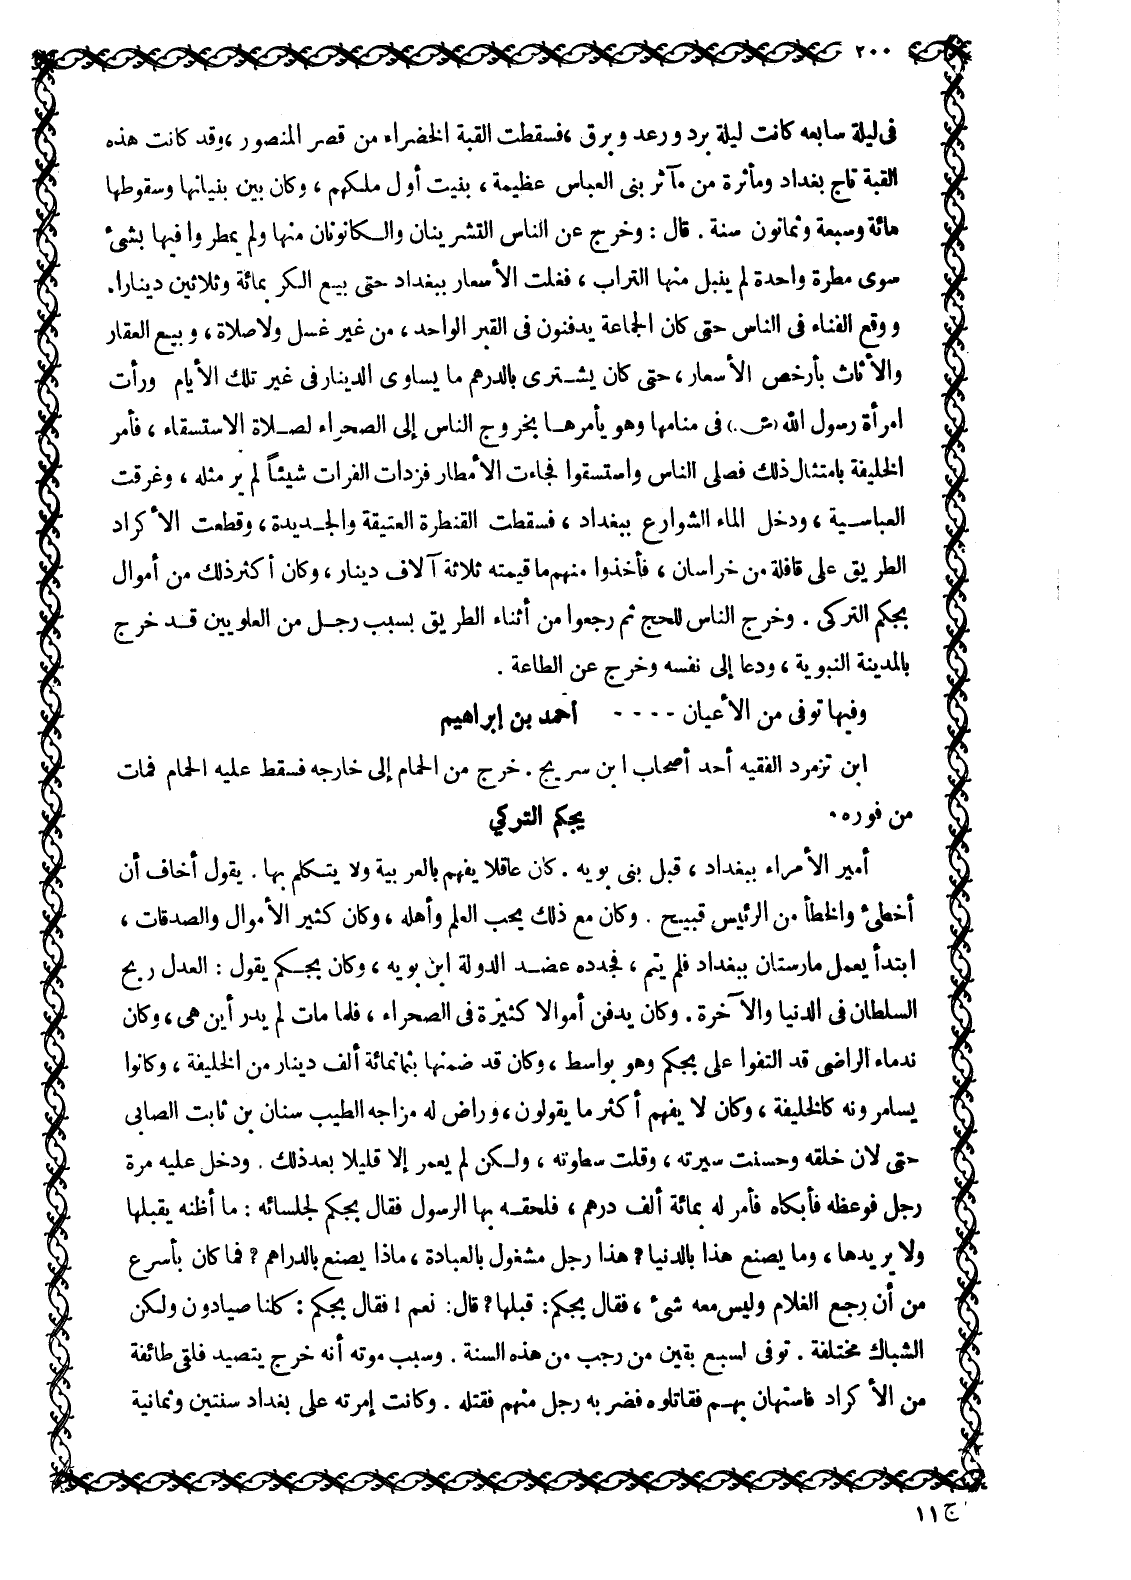 ٢٠٠
فى ليلة سابعه كانت ليلة برد ورعد وبرق ، فسقطت القبة الخضراء من قصر المنصور ، وقد كانت هذه
القبة تاج بغداد ومأثرة من مآثر بنى العباس عظيمة ، بنيت أول ملكهم ، وكان بين بنيانها وسقوطها
مائة وسبعة وثمانون سنة . قال : وخرج عن الناس التشرينان والكانونان منها ولم يمطروا فيها بشىء
سوى مطرة واحدة لم ينبل منها التراب ، فغلت الأسعار ببغداد حتى بيع الكر بمائة وثلاثين دينارا .
ووقع الفناء فى الناس حتى كان الجماعة يدفنون فى القبر الواحد ، من غير غسل ولا صلاة ، وبيع العقار
والأثاث بأرخص الأسعار ، حتى كان يشترى بالدرهم ما يساوى الدينار فى غير تلك الأيام ورأت
امرأة رسول الله (ص.) فى منامها وهو يأمرها بخروج الناس إلى الصحراء لصلاة الاستسقاء ، فأمر
الخليفة بامتثال ذلك فصلى الناس واستسقوا فجاءت الأمطار فزدات الفرات شيئاً لم ير مثله ، وغرقت
العباسية ، ودخل الماء الشوارع ببغداد ، فسقطت القنطرة العتيقة والجديدة ، وقطعت الأكراد
الطريق على قافلة من خراسان ، فأخذوا منهم ما قيمته ثلاثة آلاف دينار ، وكان أكثر ذلك من أموال
بجكم التركى . وخرج الناس للحج ثم رجعوا من أثناء الطريق بسبب رجل من العلويين قد خرج
بالمدينة النبوية ، ودعا إلى نفسه وخرج عن الطاعة .
وفيها توفى من الأعيان - - - - أحمد بن إبراهيم
ابن تزمرد الفقيه أحد أصحاب ابن سريج . خرج من الحمام إلى خارجه فسقط عليه الحمام فمات
من فوره . بجكم التركي
أمير الأمراء ببغداد ، قبل بنى بويه . كان عاقلا يفهم بالعربية ولا يتكلم بها . يقول أخاف أن
أخطئ والخطأ من الرئيس قبيح . وكان مع ذلك يحب العلم وأهله ، وكان كثير الأموال والصدقات ،
ابتدأ يعمل مارستان ببغداد فلم يتم ، فجدده عضد الدولة ابن بويه ، وكان بجكم يقول : العدل ربح
السلطان فى الدنيا والآخرة . وكان يدفن أموالا كثيرة فى الصحراء ، فلما مات لم يدر أين هى ، وكان
ندماء الراضى قد التفوا على بجكم وهو بواسط ، وكان قد ضمنها بثمانمائة ألف دينار من الخليفة ، وكانوا
يسامرونه كالخليفة ، وكان لا يفهم أكثر ما يقولون ، وراض له مزاجه الطبيب سنان بن ثابت الصابى
حتى لان خلقه وحسنت سيرته ، وقلت سطوته ، ولكن لم يعمر إلا قليلا بعد ذلك . ودخل عليه مرة
رجل فوعظه فأبكاه فأمر له بمائة ألف درهم ، فلحقه بها الرسول فقال بجكم لجلسائه : ما أظنه يقبلها
ولا يريدها ، وما يصنع هذا بالدنيا ؟ هذا رجل مشغول بالعبادة ، ماذا يصنع بالدراهم ؟ فما كان بأسرع
من أن رجع الغلام وليس معه شىء ، فقال بجكم : قبلها ؟ قال : نعم ! فقال بجكم : كلنا صيادون ولكن
الشباك مختلفة . توفى لسبع بقين من رجب من هذه السنة . وسبب موته أنه خرج يتصيد فلقى طائفة
من الأكراد فاستهان بهم فقاتلوه فضربه رجل منهم فقتله . وكانت إمرته على بغداد سنتين وثمانية
ج ١١